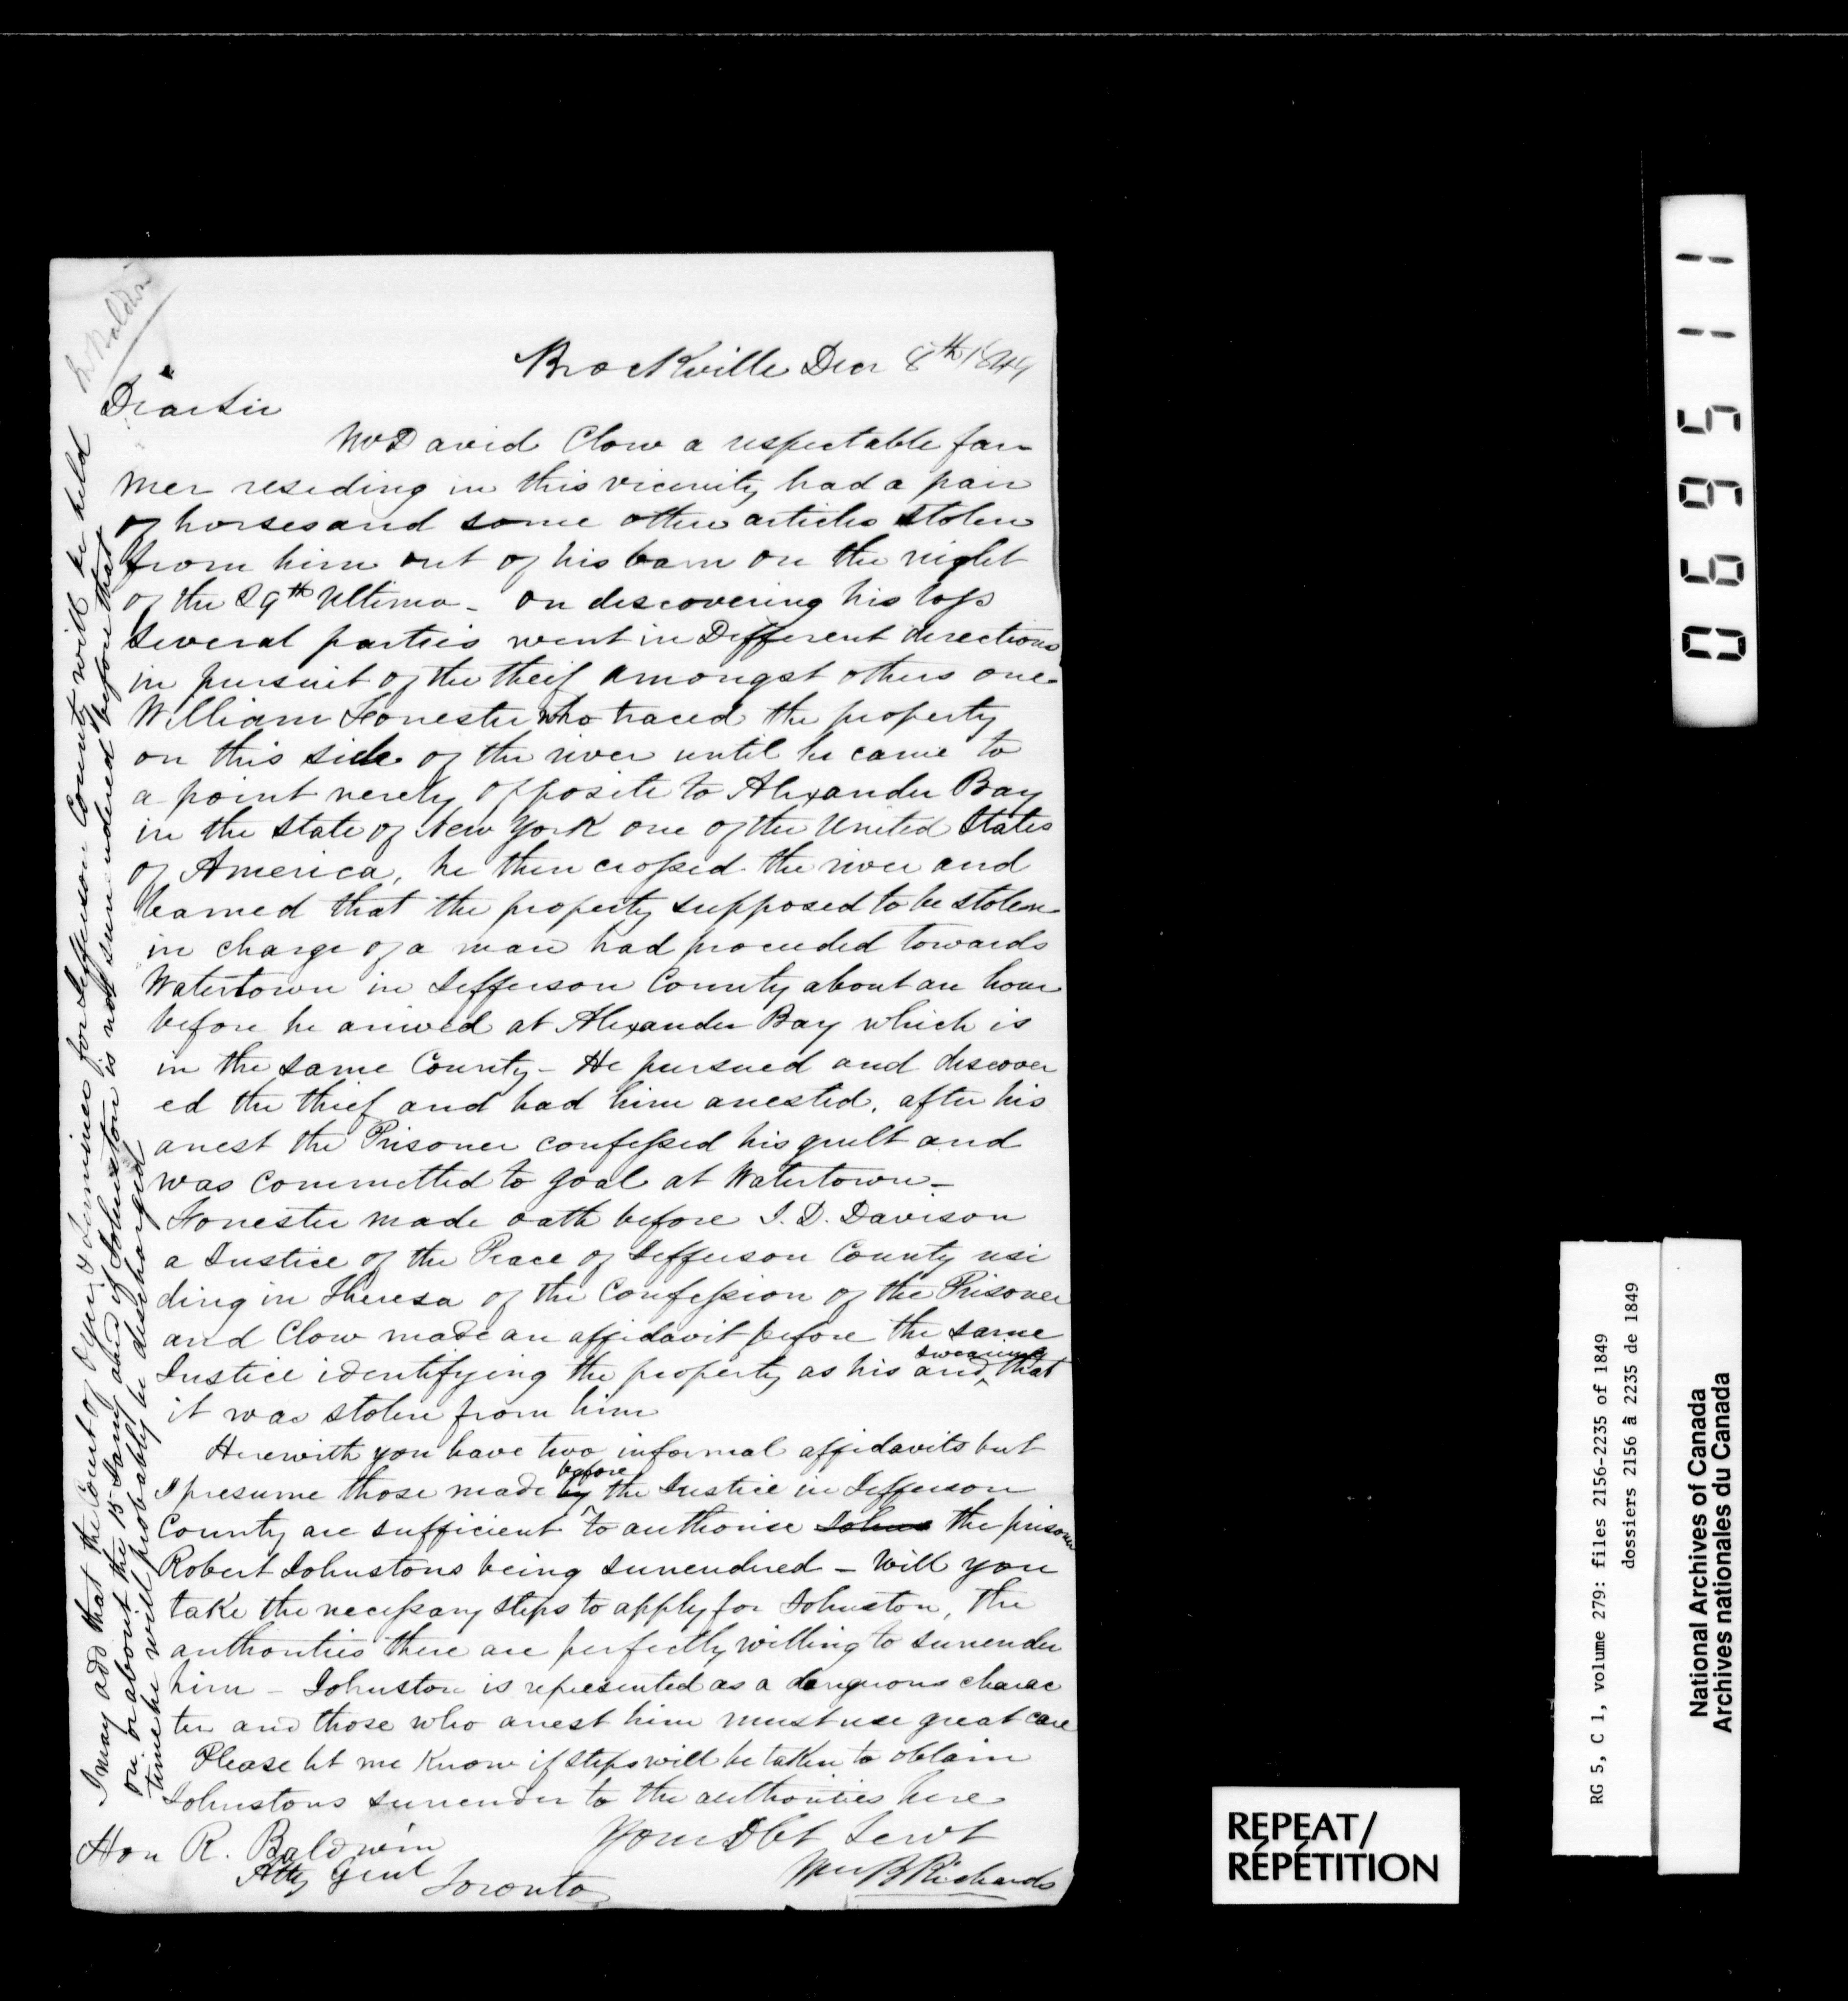 R Baldwin
Brockville Decr 8th 1849
Dear Sir
Mr David Clow a respectable far
mer residing in this vicinity had a pair
of horses and some other articles stolen
from him out of his barn on the night
of the 29th Ultimo - on discovering his loss
several parties went in Different directions
in pursuit of the theif amongst others one
William Forrester who traced the property
on this side of the river until he came to
a point nerely opposite to Alexander Bay
in the state of New York one of the United States
of America, he then crossed the river and
learned that the property supposed to be stolen
in charge of a man had proceeded towards
Watertown in Jefferson County about an hour
before he arrived at Alexander Bay which is
in the same County - He pursued and discover
ed the thief and had him arrested, after his
arrest the Prisoner confessed his guilt and
was committed to goal at Watertown -
Forrester made oath before J. D. Davison
a Justice of the Peace of Jefferson County resi
ding in Theresa of the Confession of the Prisoner
and Clow made an affidavit before the same
Justice identifying the property as his and swearing that
it was stolen from him
Herewith you have two informal affidavits but
I presume those made by before the Justice in Jefferson
County are sufficient to authorise Johns the prisoner
Robert Johnstons being surrendered - Will you
take the necessary steps to apply for Johnston, the
authorities there are perfectly willing to surrender
him - Johnston is represented as a dangerous charac
ter and those who arrest him must use great care
Please let me know if steps will be taken to obtain
Johnstons surrender to the authorities here
Your Obt Servt
Wm B Richards
Hon R. Baldwin
Atty Genl
Toronto
I may add that the Court of Oyer & Terminer for Jefferson County will be held
on or about the 15 Jany and if Johnston is not surrendered before that
time he will probably be discharged
069511
RG 5, C 1, volume 279: files 2156-2235 of 1849
dossiers 2156 à 2235 de 1849
National Archives of Canada
Archives nationales du Canada
REPEAT/
RÉPÉTITION